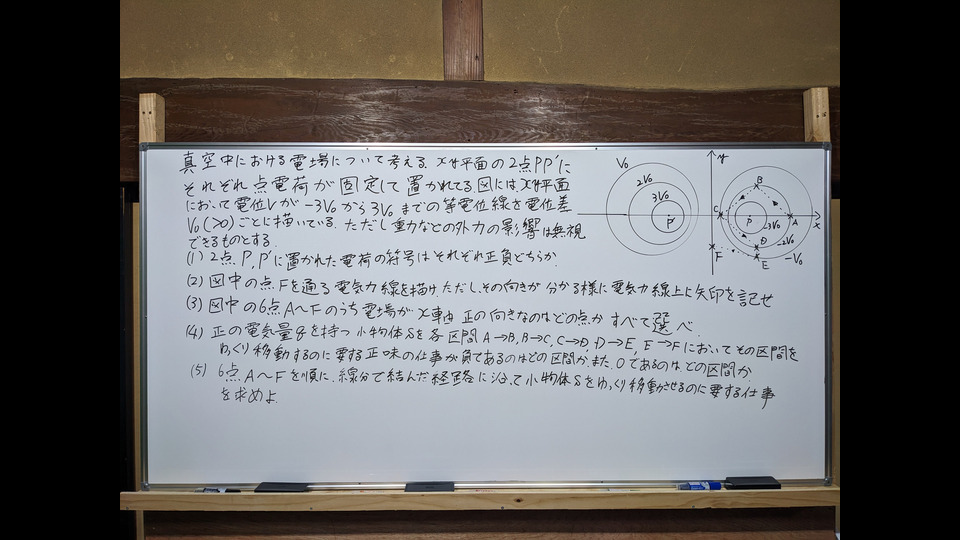 真空中における電場について考える. xy平面の2点PP'に
それぞれ点電荷が固定して置かれてる.図にはxy平面
において電位Vが-3V₀から3V₀までの等電位線を電位差
V₀(>0)ごとに描いている. ただし重力などの外力の影響は無視
できるものとする.
(1) 2点P, P'に置かれた電荷の符号はそれぞれ正負どちらか.
(2) 図中の点Fを通る電気力線を描け.ただし,その向きが分かる様に電気力線上に矢印を記せ
(3) 図中の6点A〜Fのうち電場がx軸正の向きなのはどの点かすべて選べ.
(4) 正の電気量qを持つ小物体Sを各区間A→B,B→C,C→D,D→E,E→Fにおいてその区間を
ゆっくり移動するのに要する正味の仕事が負であるのはどの区間か.また,0であるのはどの区間か
(5) 6点A〜Fを順に,線分で結んだ経路に沿って小物体Sをゆっくり移動させるのに要する仕事
を求めよ.
V₀
2V₀
3V₀
P'
y
x
B
C
A
P
-3V₀
-2V₀
-V₀
D
E
F